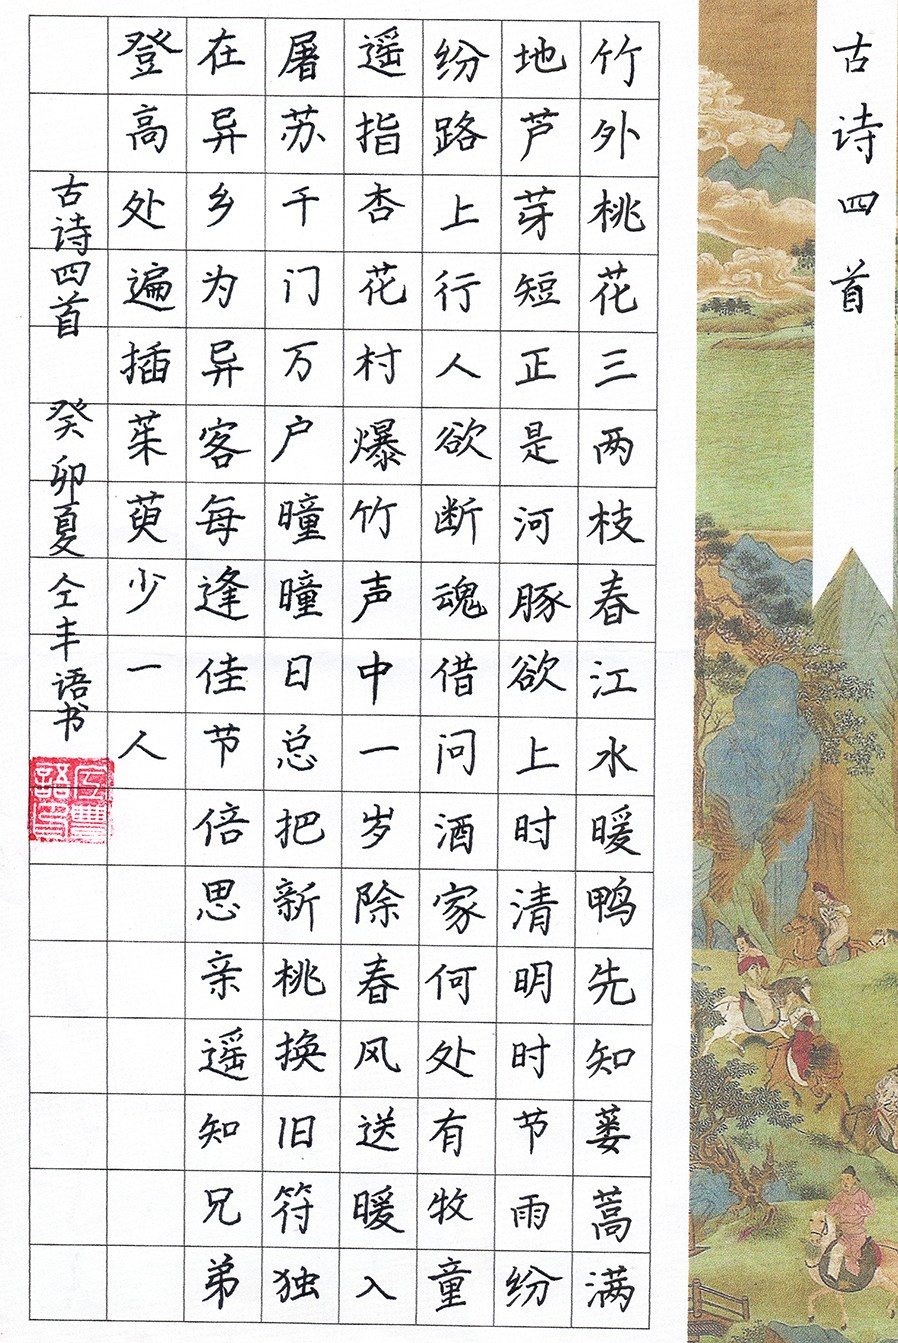 古诗四首
竹外桃花三两枝春江水暖鸭先知蒌蒿满
地芦芽短正是河豚欲上时清明时节雨纷
纷路上行人欲断魂借问酒家何处有牧童
遥指杏花村爆竹声中一岁除春风送暖入
屠苏千门万户曈曈日总把新桃换旧符独
在异乡为异客每逢佳节倍思亲遥知兄弟
登高处遍插茱萸少一人
古诗四首 癸卯夏 仝丰语书